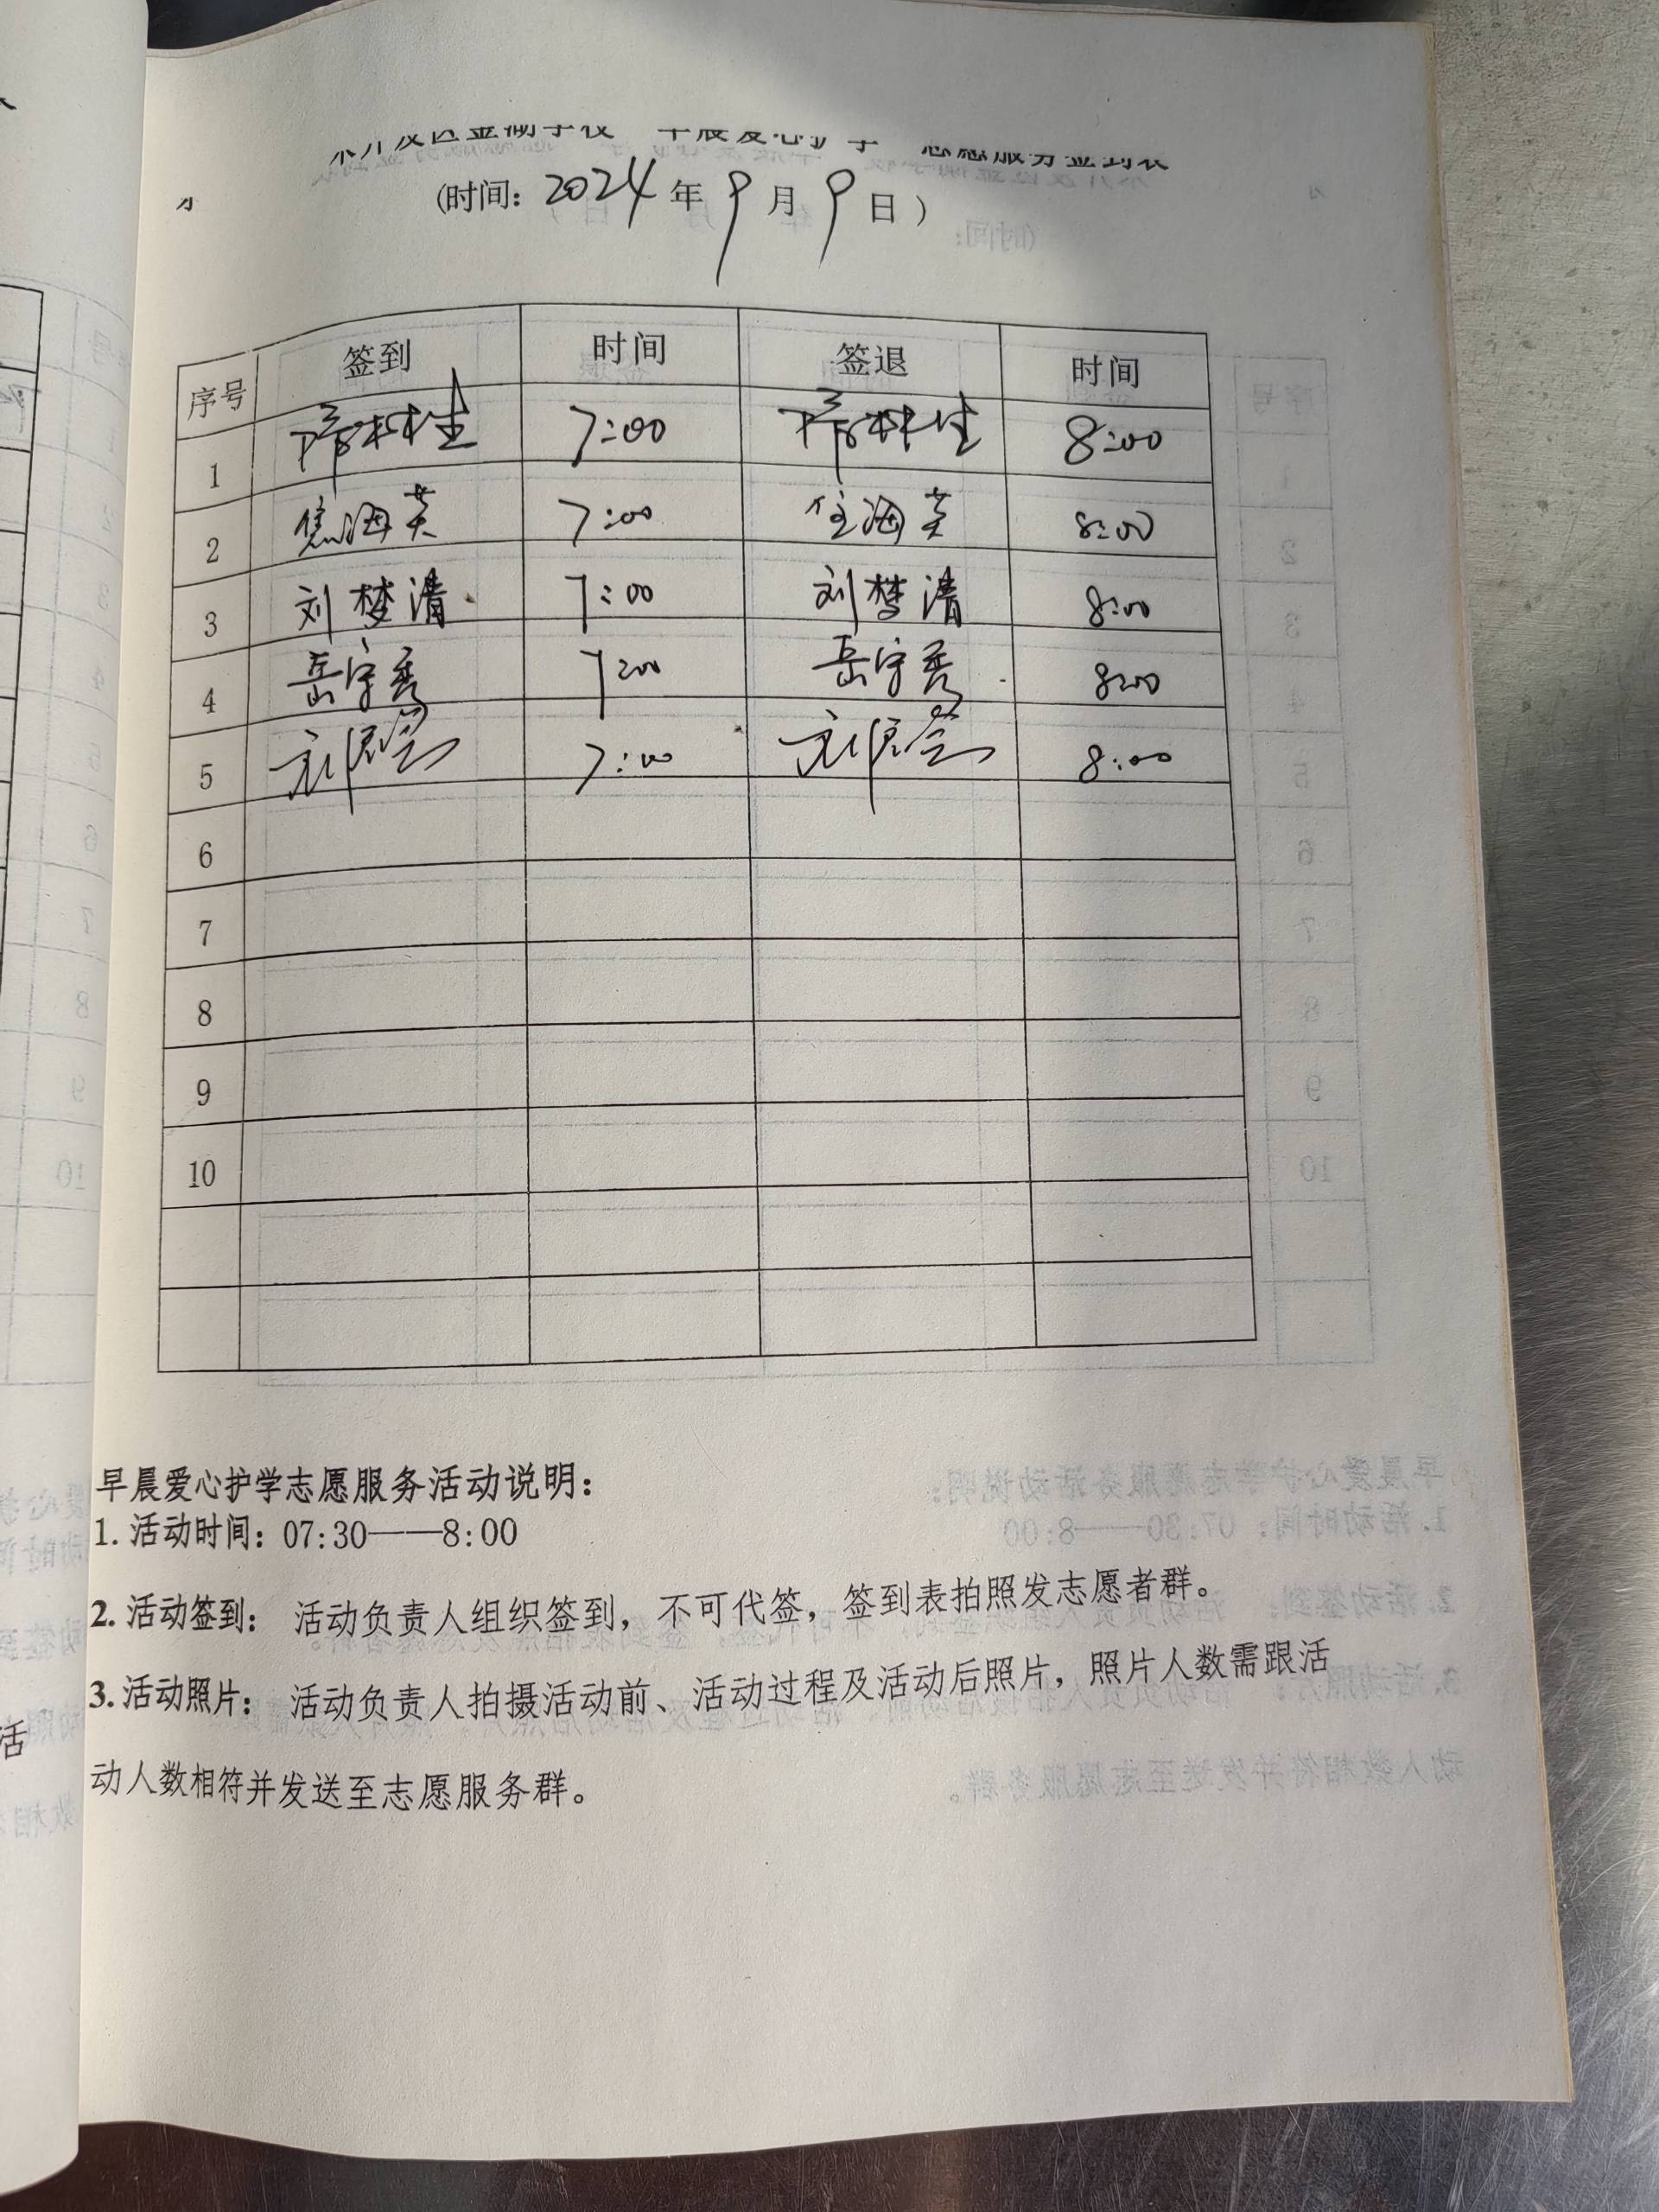 金湖学校 早晨爱心护学 志愿服务签到表
(时间: 2024 年 9 月 9 日)
序号 签到 时间 签退 时间
1 7:00 8:00
2 焦海英 7:00 焦海英 8:00
3 刘梦清 7:00 刘梦清 8:00
4 岳宇秀 7:00 岳宇秀 8:00
5 7:00 8:00
6
7
8
9
10
早晨爱心护学志愿服务活动说明:
1. 活动时间: 07:30——8:00
2. 活动签到: 活动负责人组织签到, 不可代签, 签到表拍照发志愿者群。
3. 活动照片: 活动负责人拍摄活动前、活动过程及活动后照片, 照片人数需跟活
动人数相符并发送至志愿服务群。